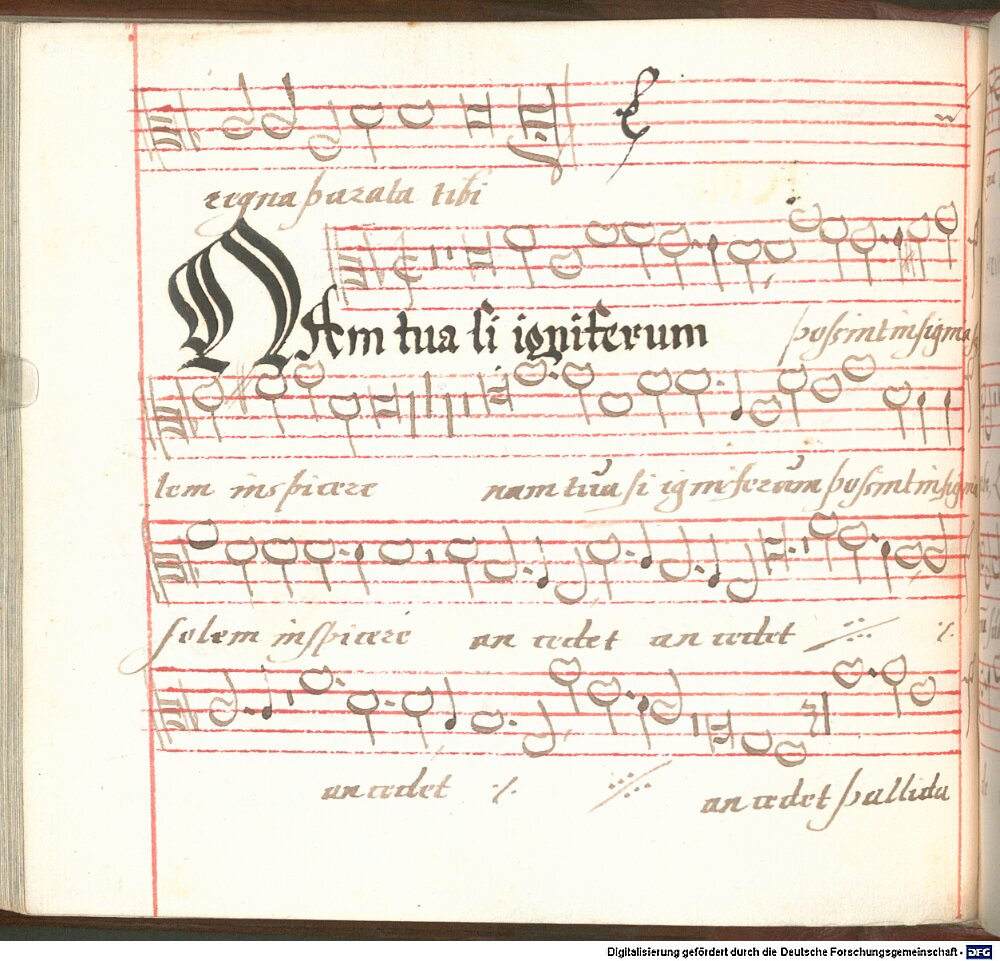 regna parata tibi
NAm tua si igniferum
possint insigna
lem inspicere nam tua si igniferum possint insigna
solem inspicere an cedet an cedet
an cedet
an cedet pallida
Digitalisierung gefördert durch die Deutsche Forschungsgemeinschaft - DFG